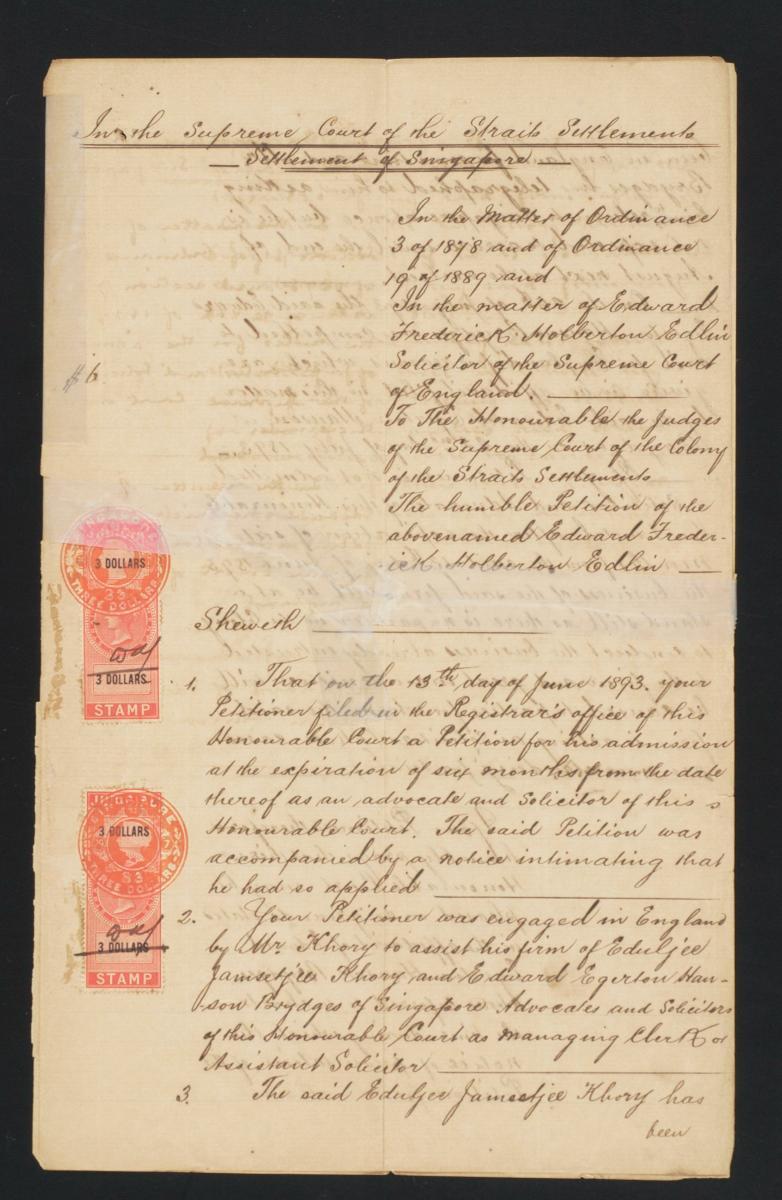 In the Supreme Court of the Straits Settlements
Settlement of Singapore
In the Matter of Ordinance
3 of 1878 and of Ordinance
19 of 1889 and
In the matter of Edward
Frederick Holberton Edlin
Solicitor of the Supreme Court
of England.
$6
To The Honourable the Judges
of the Supreme Court of the Colony
of the Straits Settlements
The humble Petition of the
abovenamed Edward Freder-
ick Holberton Edlin
3 DOLLARS
THREE DOLLARS
3 DOLLARS
STAMP
Sheweth
1. That on the 13th day of June 1893. your
Petitioner filed in the Registrar's office of this
Honourable Court a Petition for his admission
at the expiration of six months from the date
thereof as an advocate and Solicitor of this
Honourable Court. The said Petition was
accompanied by a notice intimating that
he had so applied
SINGAPORE
3 DOLLARS
THREE DOLLARS
3 DOLLARS
STAMP
2. Your Petitioner was engaged in England
by Mr. Khory to assist his firm of Eduljee
Jamsetjee Khory and Edward Egerton Han-
son Brydges of Singapore Advocates and Solicitors
of this Honourable Court as Managing Clerk or
Assistant Solicitor
3. The said Eduljee Jamsetjee Khory has
been